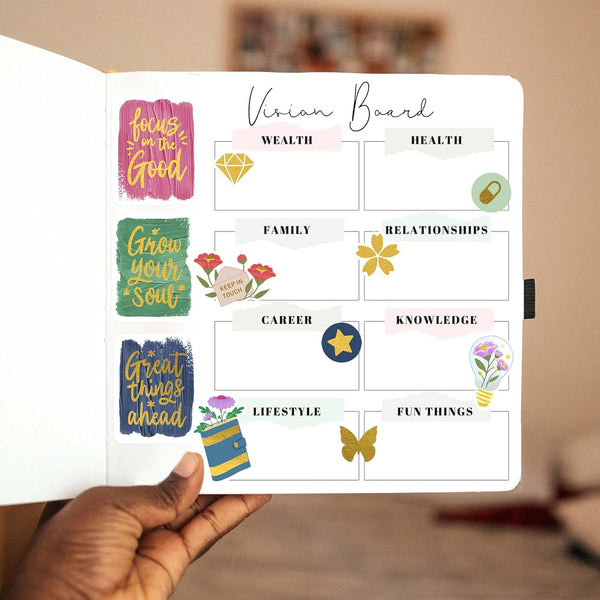 Vision Board
focus
on the
Good
Grow
your
soul
Great
things
ahead
WEALTH
HEALTH
FAMILY
RELATIONSHIPS
KEEP IN
TOUCH
CAREER
KNOWLEDGE
LIFESTYLE
FUN THINGS